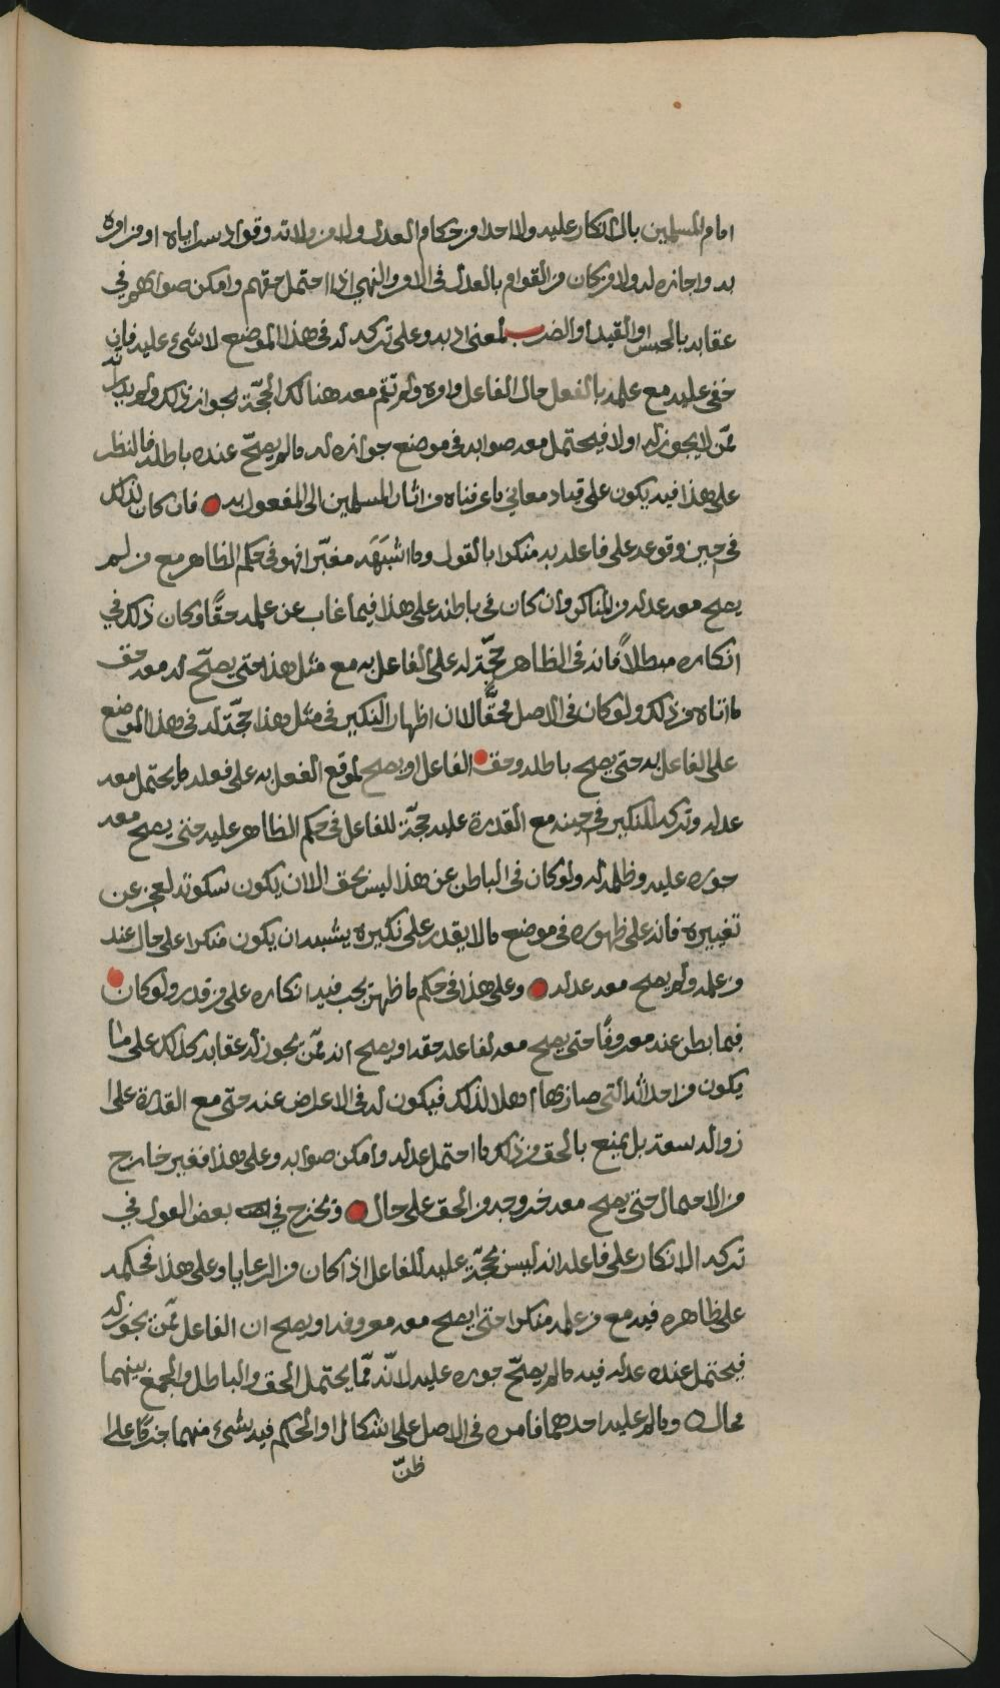 امام المسلمين بالانكار عليه ولا احدا من حكام العدل ولا من ولاته وقواد سراياه او من امره
به واجازه له ولا من كان من القوام بالعدل في الامر والنهي اذا احتمل حقهم وامكن صوابهم في
عقابه بالحبس او القيد او الضرب لمعنى ادبه وعلى تركه له في هذا الموضع لا شيء عليه فان
خفي عليه مع علمه بالفعل حال الفاعل وامره ولم تقم معه هنالك الحجة بجواز ذلك ولم يدر انه
ممن لا يجوز له او لا فيحتمل معه صوابه في موضع جوازه له ما لم يصح عنده باطله فالنظر
على هذا فيه يكون على قياد معاني ما عرفناه من اثار المسلمين الى المفعول به فان كان لذلك
في حين وقوعه على فاعله به منكرا بالقول وما اشبهه مغيرا فهو في حكم الظاهر مع من لم
يصح معه عدله من المناكر وان كان في باطنه على هذا فيما غاب عن علمه حقا وكان ذلك في
انكاره مبطلا فانه في الظاهر حجة له على الفاعل به مع مثل هذا حتى يصح له معه حق
ما اتاه من ذلك ولو كان في الاصل محقا لان اظهار النكير في مثل هذا حجة له في هذا الموضع
على الفاعل به حتى يصح باطله وحق الفاعل او يصح لموقع الفعل به على فعله ما يحتمل معه
عدله وتركه للنكير في حينه مع القدرة عليه حجة للفاعل في حكم الظاهر عليه حتى يصح معه
جوره عليه وظلمه له ولو كان في الباطن عن هذا ليس بحق الا ان يكون سكوته لعجز عن
تغييره فانه على ظهوره في موضع ما لا يقدر على نكيره يشبه ان يكون منكرا على حال عند
من علمه ولم يصح معه عدله وعلى هذا في حكم ما ظهر يجب فيه انكاره على من قدر ولو كان
فيما بطن عنه معروفا حتى يصح معه لفاعله حقه او يصح انه ممن يجوز له عقابه كذلك على ما
يكون من احد الله التي صار بها اهلا لذلك فيكون له في الاعراض عنه حتى مع القدرة على
زواله سعة بل يمنع بالحق من ذلك ما احتمل عدله وامكن صوابه وعلى هذا فغير خارج
من الاحتمال حتى يصح معه خروجه من الحق على حال ويخرج في بعض القول في
تركه الانكار على فاعله انه ليس بحجة عليه للفاعل اذا كان من الرعايا وعلى هذا فحكمه
على ظاهره فيه مع من علمه منكرا حتى يصح معه معروفه او يصح ان الفاعل ممن يجوز له
فيحتمل عنده عدله فيه ما لم يصح جوره عليه لانه مما يحتمل الحق والباطل والجمع بينهما
محال وما لم عليه احدهما فامره في الاصل على اشكال او الحكم فيه بشيء منهما جزما على
ظن